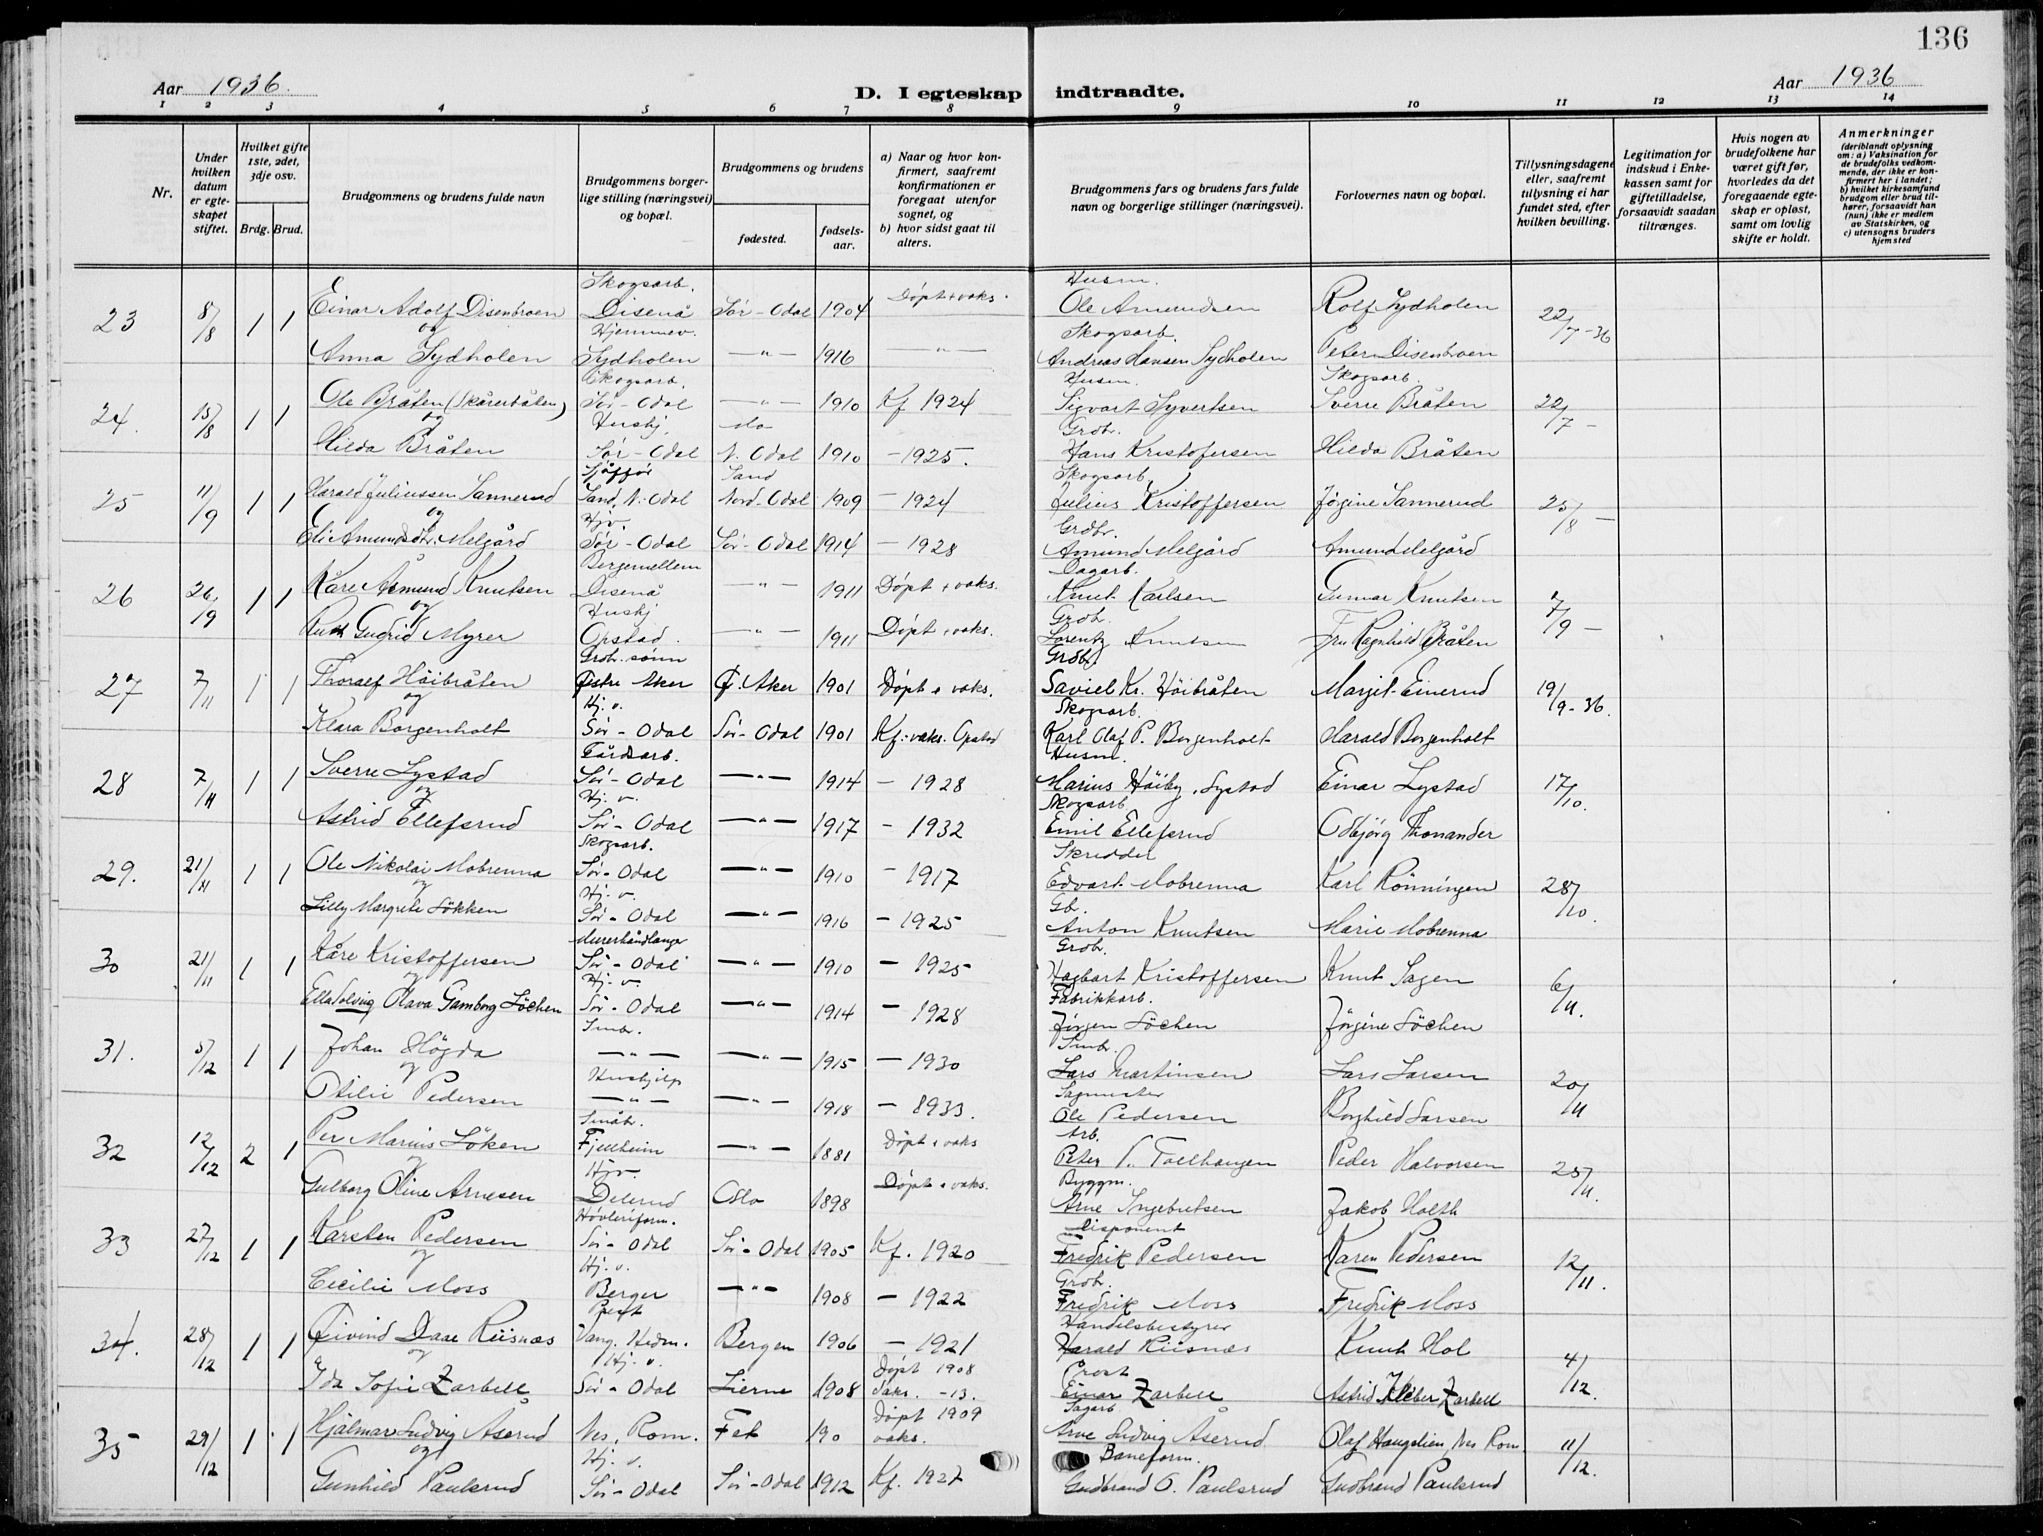 136
Aar 1936.
D. I egteskap indtraadte.
Aar 1936
1 2 3 4 5 6 7 8 9 10 11 12 13 14
Nr.
Under hvilken datum er egteskapet stiftet.
Hvilket gifte 1ste, 2det, 3dje osv.
Brdg. Brud.
Brudgommens og brudens fulde navn
Brudgommens borgerlige stilling (næringsvei) og bopæl.
Brudgommens og brudens
fødested.
fødselsaar.
a) Naar og hvor konfirmert, saafremt konfirmationen er foregaat utenfor sognet, og
b) hvor sidst gaat til alters.
Brudgommens fars og brudens fars fulde navn og borgerlige stillinger (næringsvei).
Forlovernes navn og bopæl.
Tillysningsdagene eller, saafremt tillysning ei har fundet sted, efter hvilken bevilling.
Legitimation for indskud i Enkekassen samt for giftetilladelse, forsaavidt saadan tiltrænges.
Hvis nogen av brudefolkene har været gift før, hvorledes da det foregaaende egteskap er opløst, samt om lovlig skifte er holdt.
Anmerkninger (deriblandt oplysning om: a) Vaksination for de brudefolks vedkommende, der ikke er konfirmert her i landet; b) hvilket kirkesamfund brudgom eller brud tilhører, forsaavidt han (hun) ikke er medlem av Statskirken, og c) utensogns bruders hjemsted
Skogsarb. Husm.
23 8/8 1 1 Einar Adolf Disenbroen Disenå Sør-Odal 1904 Døpt + vaks. Ole Amundsen Rolf Sydholen 22/7-36
og Hjemmev. Skogsarb.
Anna Sydholen Sydholen —"— 1916 —"— Andreas Hansen Sydholen Peter Disenbroen
Skogsarb. Husm. Skogsarb.
24. 15/8 1 1 Ole Bråten (Skårerbåten) Sør-Odal —"— 1910 Kf 1924 Sigvart Syvertsen Sverre Bråten 22/7 -
og Hushj. Mo Grdbr.
Hilda Bråten Sør-Odal N. Odal 1910 - 1925. Hans Kristofersen Hilda Bråten
Sjåfør Sand Skogsarb.
25 11/9 1 1 Harald Juliussen Sannerud Sand, N. Odal Nord-Odal 1909 - 1924 Julius Kristoffersen Jørgine Sannerud 25/8 -
og Hjv. Grdbr.
Eli Amundsdtr. Melgård Sør-Odal Sør-Odal 1914 - 1928 Amund Melgård Amund Melgård
Bergemellem Dagarb.
26 26/9 1 1 Kåre Åsmund Knutsen Disenå —"— 1911 Døpt + vaks. Knut Karlsen Gunnar Knutsen 7/9 -
og Hushj Grdb.
Ruth Gudrid Myrer Opstad. —"— 1911 Døpt + vaks. Lorentz Knutsen Fru Ragnhild Bråten
Grdbr. sønn Grdb.
27 7/11 1 1 Thoralf Høibråten Østre Aker Ø. Aker 1901 Døpt + vaks. Saviel Kr. Høibråten Margit Einerud 19/9-36.
og Hj. v. Skogsarb.
Klara Borgenholt Sør-Odal Sør-Odal 1901 Kf. + vaks. Opstad Karl Olaf P. Borgenholt Harald Borgenholt
Gårdsarb. Husm.
28 7/11 1 1 Sverre Lystad Sør-Odal —"— 1914 - 1928 Marius Høiby, Lystad Einar Lystad 17/10.
og Hj. v. Skogsarb
Astrid Ellefsrud Sør-Odal —"— 1917 - 1932 Emil Ellefsrud Odbjørg Thonander
Skogsarb. Skredder
29. 21/11 1 1 Ole Nikolai Mobrenna Sør-Odal —"— 1910 - 1917 Edvart Mobrenna Karl Rönningen 28/10.
og Hj. v. Gb.
Lilly Margrete Løkken Sør-Odal —"— 1916 - 1925 Anton Knutsen Marie Mobrenna
Murerhåndlanger Grdb.
30 21/11 1 1 Kåre Kristoffersen Sør-Odal —"— 1910 - 1925 Hagbart Kristoffersen Knut Sagen 6/11.
og Hj. v. Fabrikkarb.
Ella Solvig Olava Gamborg Löchen Sør-Odal —"— 1914 - 1928 Jörgen Löchen Jörgine Löchen
Smbr. Smbr.
31. 5/12 1 1 Johan Högda —"— —"— 1915 - 1930 Lars Martinsen Lars Larsen 20/11
og Hushjelp Sagmester
Otilie Pedersen —"— —"— 1918 - 8933. Ole Pedersen Borghild Larsen
Småbr. Arb.
32 12/12 2 1 Per Marius Löken Fjellheim —"— 1881 Døpt + vaks Peter Tollhaugen Peder Halvorsen 25/11.
og Hjv. Byggm.
Gulborg Oline Arnesen Delerud Oslo 1898 Døpt + vaks. Arne Ingebretsen Jakob Holth
Høvleriform. Disponent
33 27/12 1 1 Karsten Pedersen Sør-Odal Sør-Odal 1905 Kf. 1920 Fredrik Pedersen Karen Pedersen 12/11.
og Hj. v. Grdbr.
Cecilie Moss Berger —"— 1908 - 1922 Fredrik Moss Fredrik Moss
Prest Handelsbestyrer
34. 28/12 1 1 Øivind Daae Riisnæs Vang. Hedm. Bergen 1906 - 1921 Harald Riisnæs Knut Hol 4/12.
og Hj. v. Døpt 1908 Prost
Ida Sofie Zarbell Sør-Odal Lierne 1908 vaks. -13. Einar Zarbell Astrid Kleber Zarbell
Døpt 1909 Sagarb
35 29/12 1 1 Hjalmar Ludvig Åserud Nes, Rom. Fet 190 vaks. Arne Ludvig Åserud Olaf Haugelien, Nes Rom 11/12.
og Hj. v. Baneform.
Gunhild Paulsrud Sør-Odal Sør-Odal 1912 Kf. 1927 Gudbrand O. Paulsrud Gudbrand Paulsrud